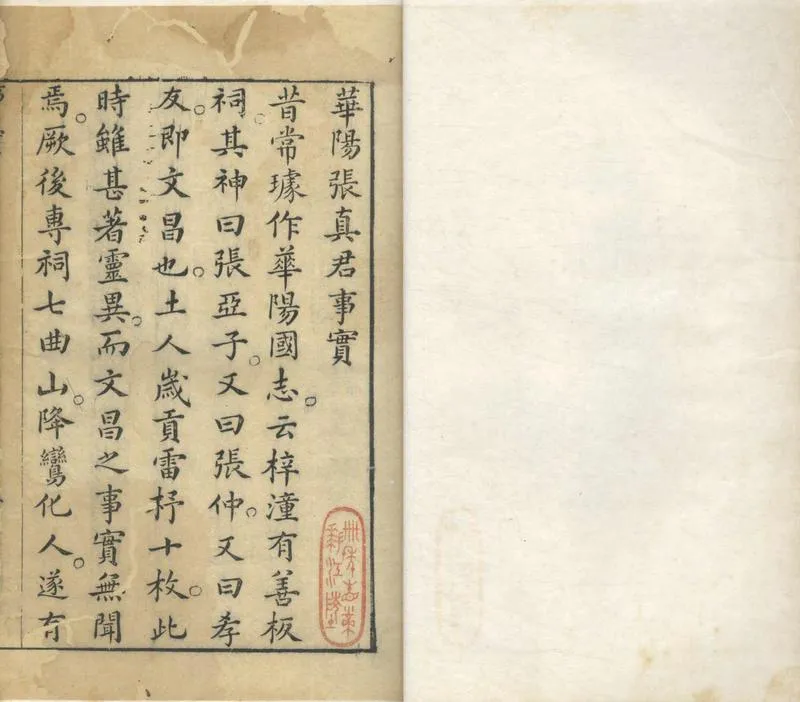 華陽張真君事實
昔常璩作華陽國志。云梓潼有善板
祠其神曰張亞子。又曰張仲。又曰孝
友。即文昌也。土人歲貢雷杼十枚。此
時雖甚著靈異。而文昌之事實無聞
焉。厥後專祠七曲山。降鸞化人。遂有